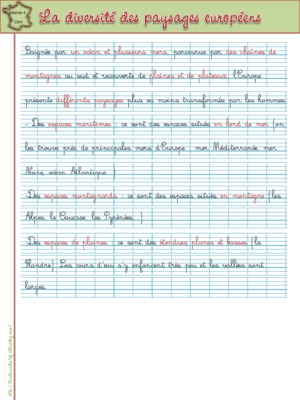 La diversité des paysages européens
Baignée par un océan et plusieurs mers, parcourue par des chaînes de
montagnes au sud et recouverte de plaines et de plateaux, l'Europe
présente différents paysages plus ou moins transformés par les hommes.
- Des espaces maritimes : ce sont des espaces situés en bord de mer (on
les trouve près de principales mers d'Europe : mer Méditerranée, mer
Noire, océan Atlantique...)
-Des espaces montagnards : ce sont des espaces situés en montagne (les
Alpes, le Caucase, les Pyrénées...)
-Des espaces de plaines : ce sont des étendues planes et basses (la
Flandre). Les cours d'eau s'y enfoncent très peu et les vallées sont
larges.